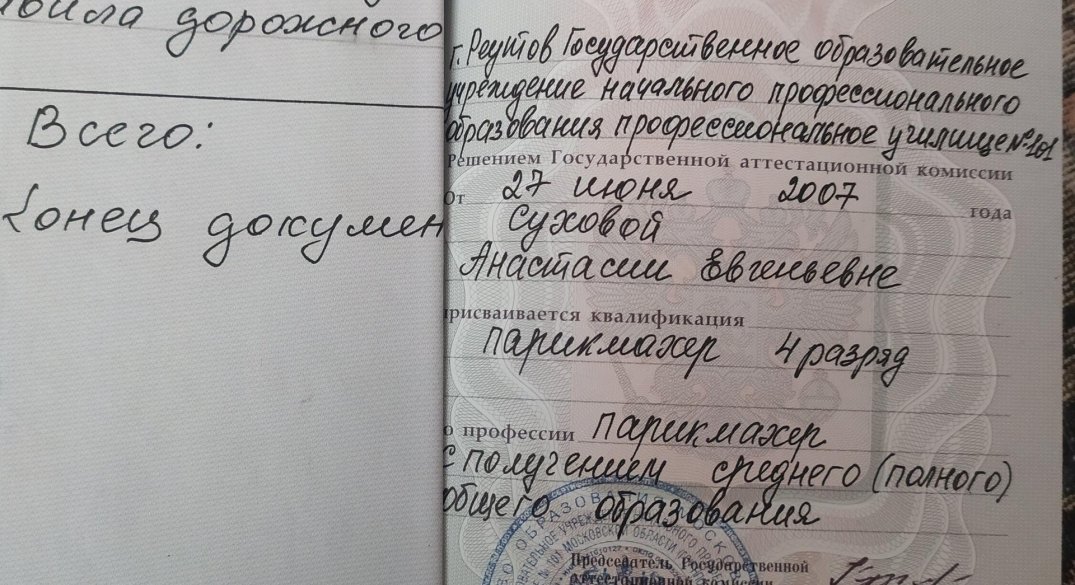 дорожного
Всего:
Конец докумен
г. Реутов Государственное образовательное
учреждение начального профессионального
образования профессиональное училище №101
Решением Государственной аттестационной комиссии
от 27 июня 2007 года
Суховой
Анастасии Евгеньевне
присваивается квалификация
парикмахер 4 разряд
о профессии парикмахер
с получением среднего (полного)
общего образования
Председатель Государственной
аттестационной комиссии